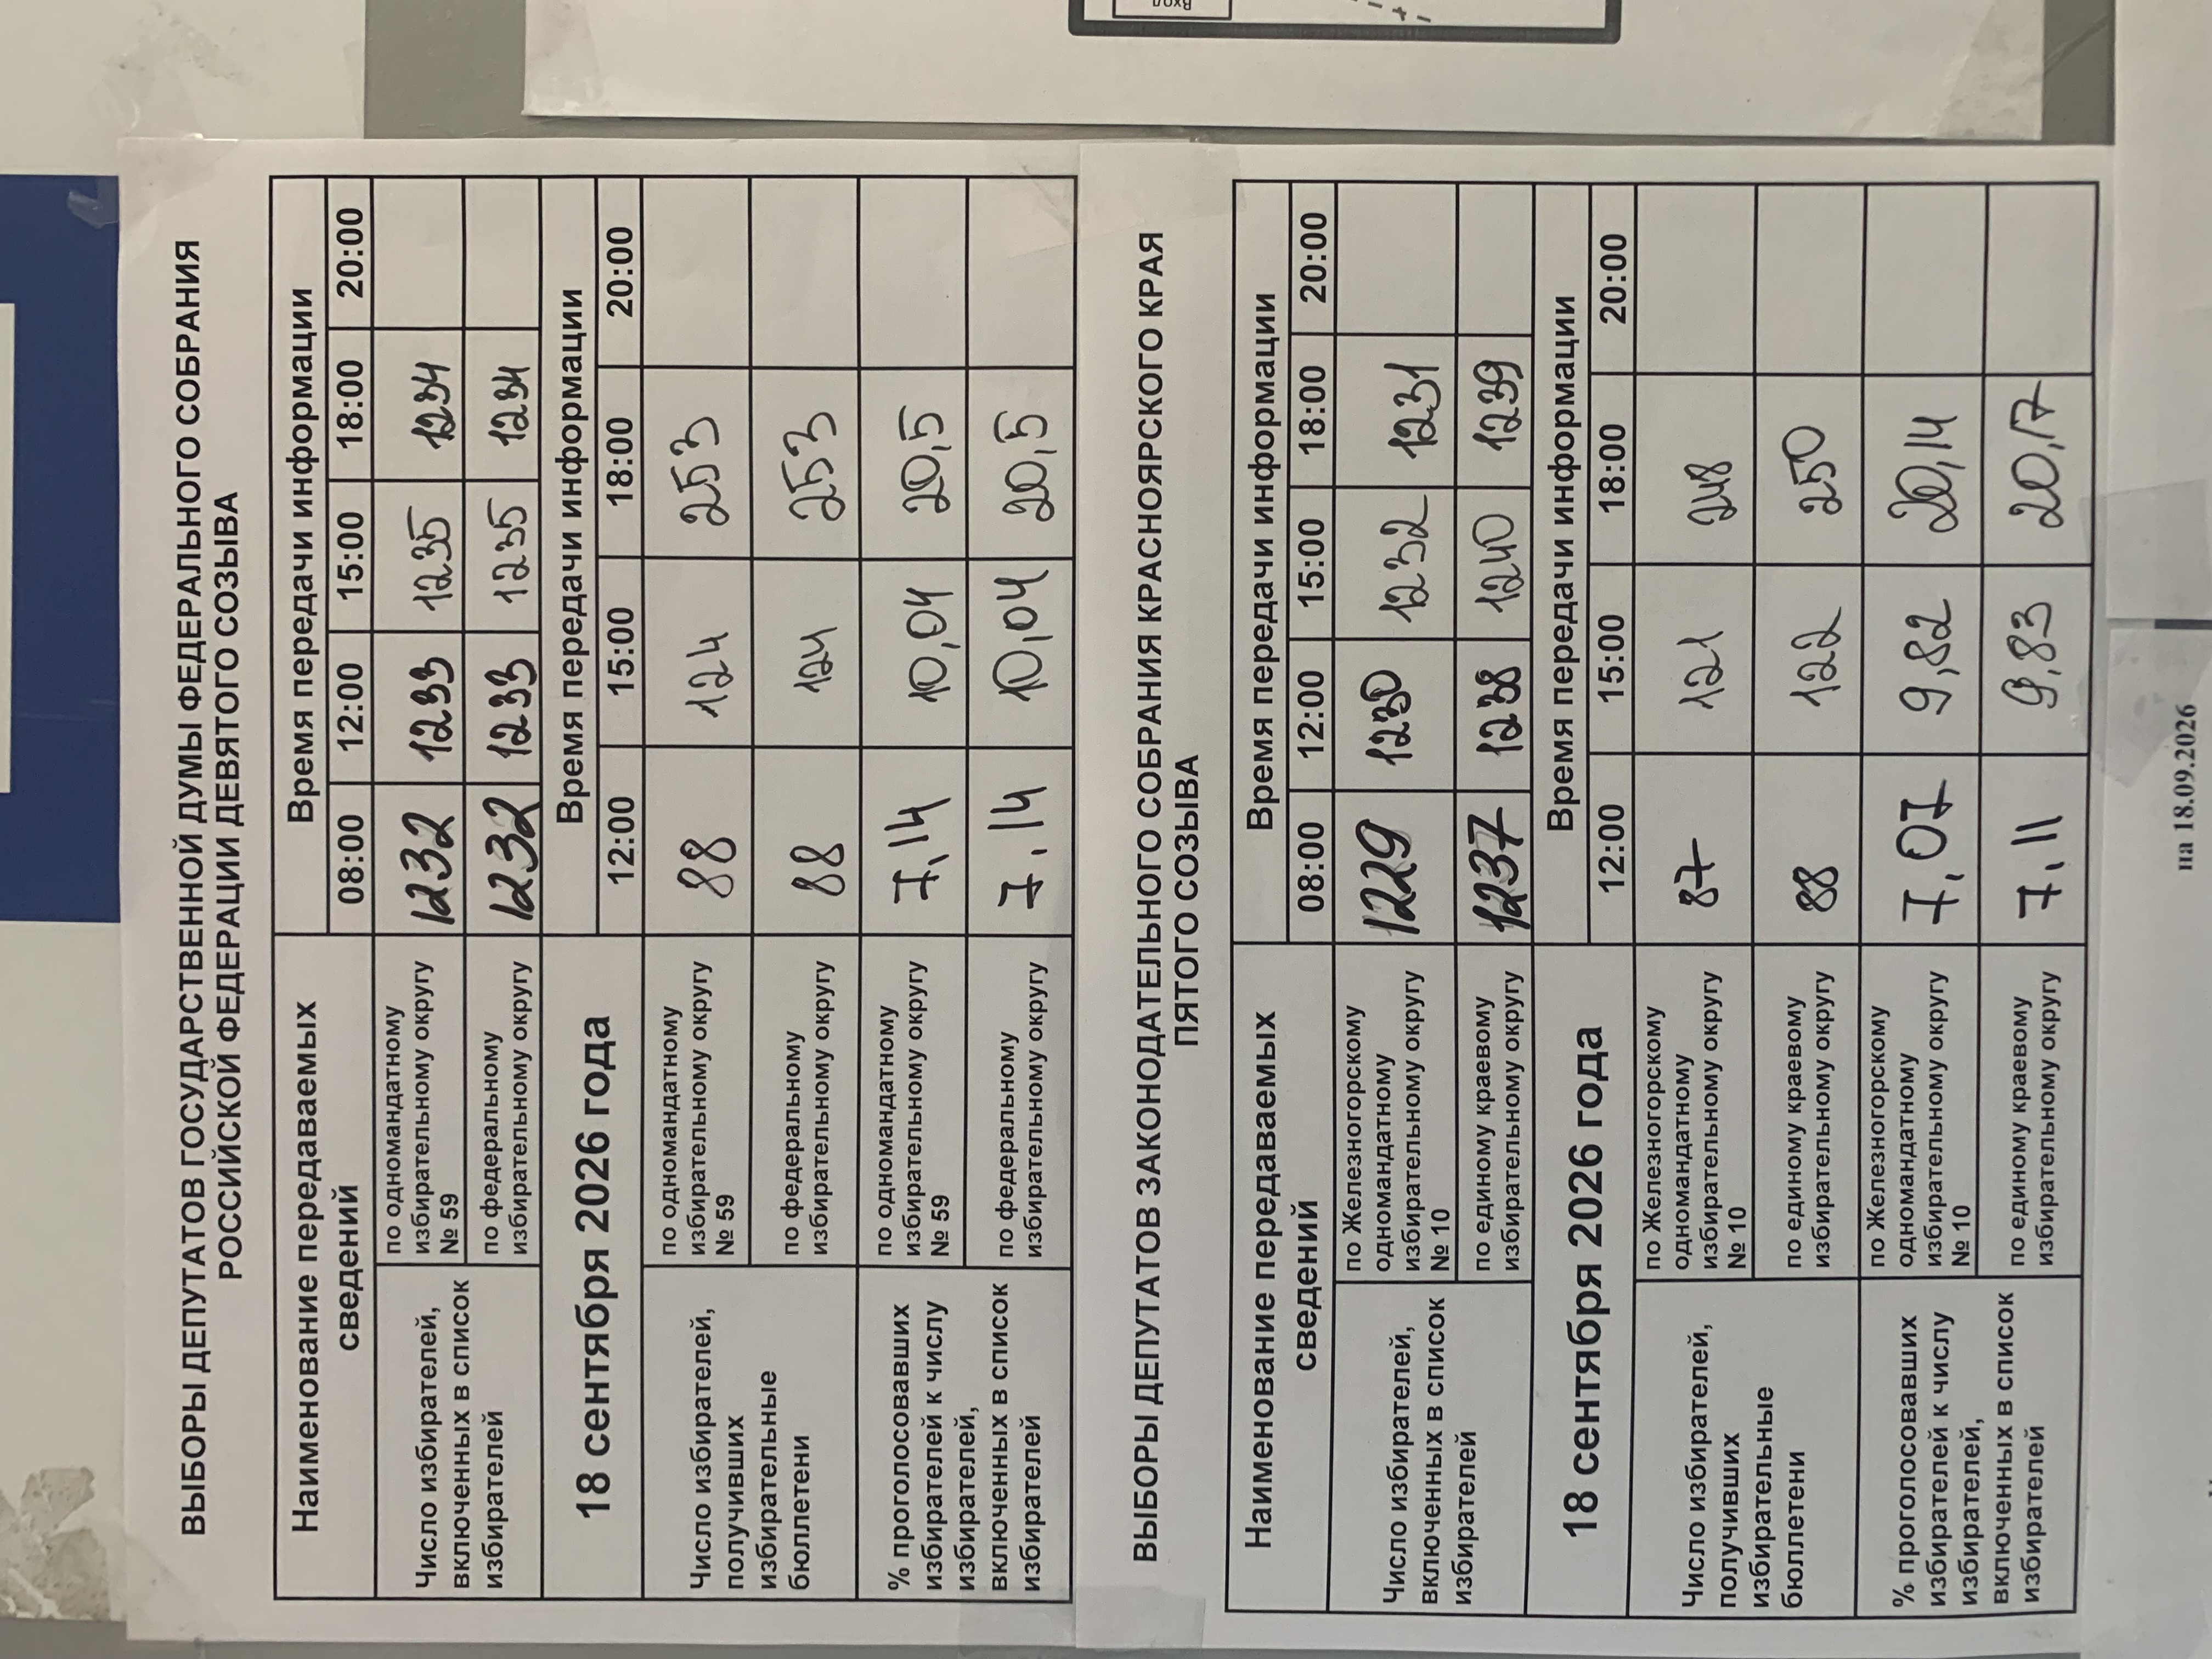 ВЫБОРЫ ДЕПУТАТОВ ГОСУДАРСТВЕННОЙ ДУМЫ ФЕДЕРАЛЬНОГО СОБРАНИЯ
РОССИЙСКОЙ ФЕДЕРАЦИИ ДЕВЯТОГО СОЗЫВА
Наименование передаваемых
сведений
Время передачи информации
08:00 12:00 15:00 18:00 20:00
Число избирателей,
включенных в список
избирателей
по одномандатному
избирательному округу
№ 59
1232 1233 1235 1234
по федеральному
избирательному округу
1232 1233 1235 1234
18 сентября 2026 года
Время передачи информации
12:00 15:00 18:00 20:00
Число избирателей,
получивших
избирательные
бюллетени
по одномандатному
избирательному округу
№ 59
88 124 253
по федеральному
избирательному округу
88 124 253
% проголосовавших
избирателей к числу
избирателей,
включенных в список
избирателей
по одномандатному
избирательному округу
№ 59
7,14 10,04 20,5
по федеральному
избирательному округу
7.14 10,04 20,5
ВЫБОРЫ ДЕПУТАТОВ ЗАКОНОДАТЕЛЬНОГО СОБРАНИЯ КРАСНОЯРСКОГО КРАЯ
ПЯТОГО СОЗЫВА
Наименование передаваемых
сведений
Время передачи информации
08:00 12:00 15:00 18:00 20:00
Число избирателей,
включенных в список
избирателей
по Железногорскому
одномандатному
избирательному округу
№ 10
1229 1230 1232 1231
по единому краевому
избирательному округу
1237 1238 1240 1239
18 сентября 2026 года
Время передачи информации
12:00 15:00 18:00 20:00
Число избирателей,
получивших
избирательные
бюллетени
по Железногорскому
одномандатному
избирательному округу
№ 10
87 121 248
по единому краевому
избирательному округу
88 122 250
% проголосовавших
избирателей к числу
избирателей,
включенных в список
избирателей
по Железногорскому
одномандатному
избирательному округу
№ 10
7,07 9,82 20,14
по единому краевому
избирательному округу
7.11 9,83 20,17
на 18.09.2026
Вход